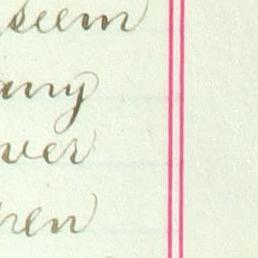 seem
any
ver
hen